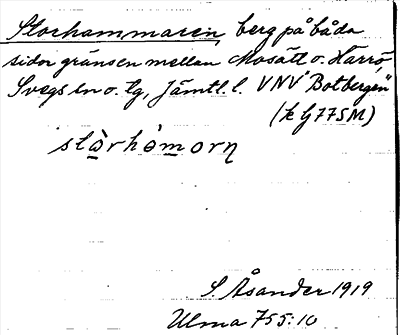 Storhammaren, berg på båda
sidor gränsen mellan Mosätt o. Harrö,
Svegs sn o. tg, Jämtl. l. VNV Botbergen"
(k G 77 SM)
stòrhȯmorn
S. Åsander 1919
Ulma 755:10